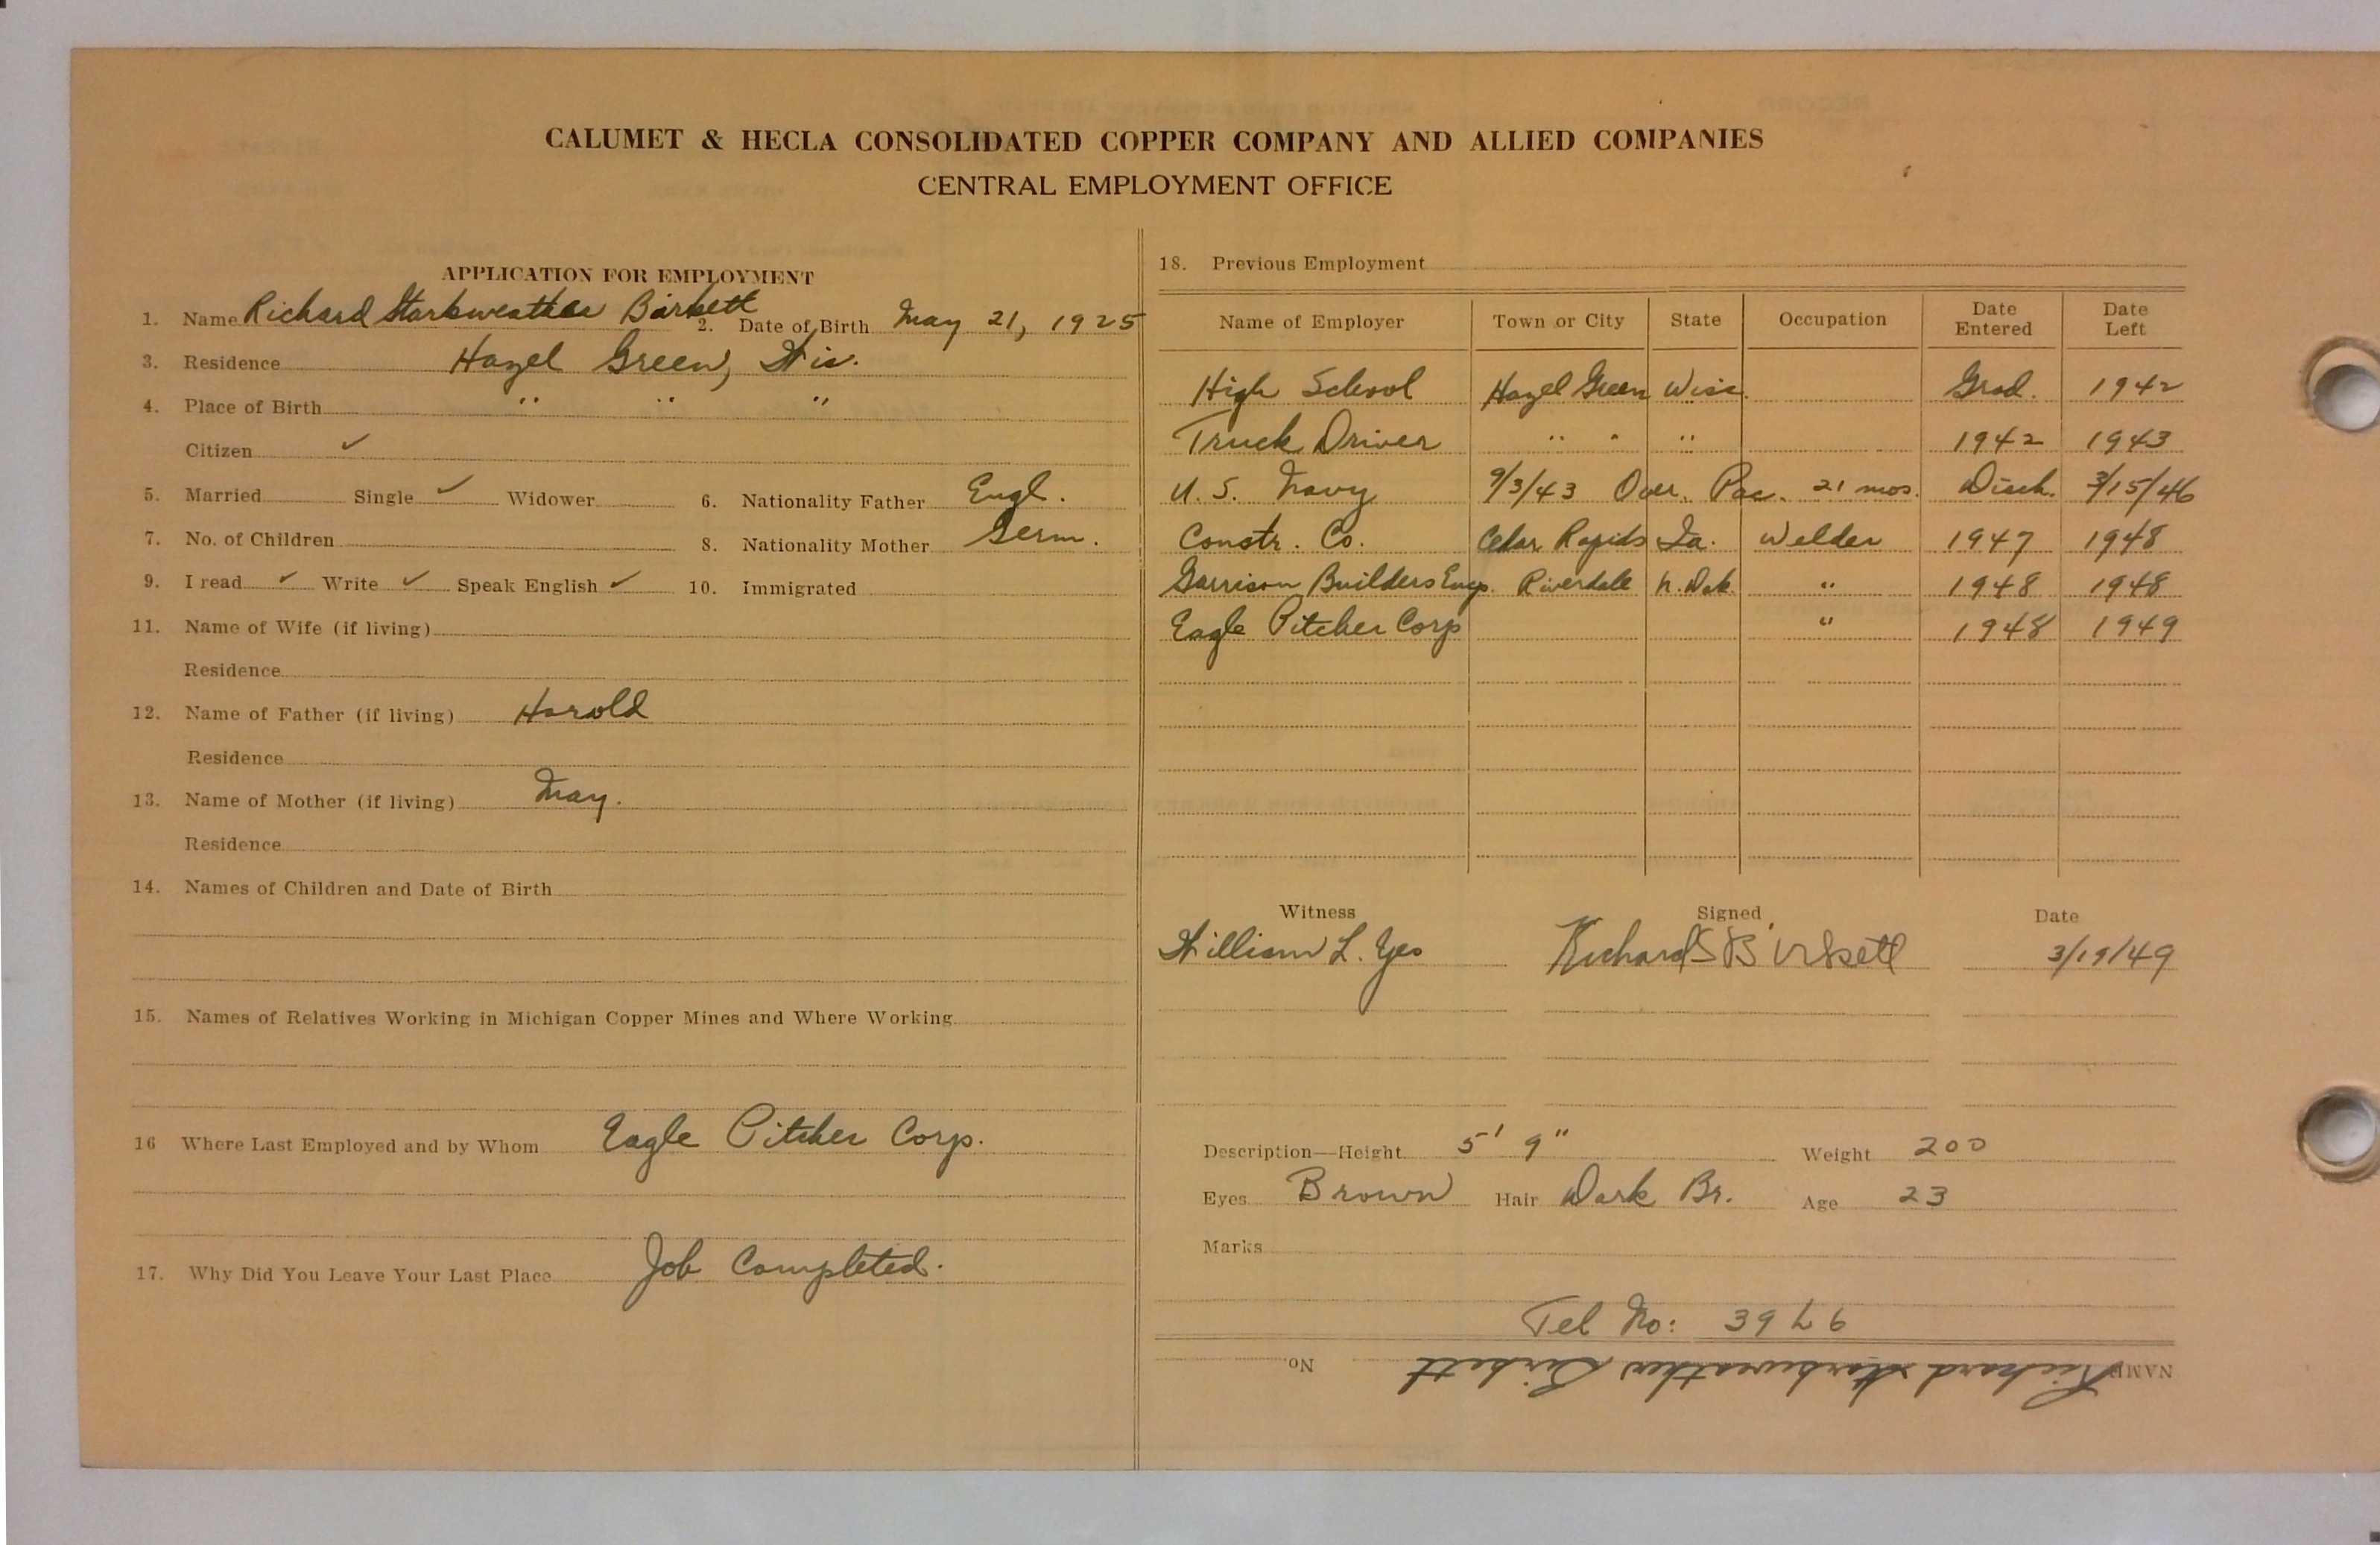 CALUMET & HECLA CONSOLIDATED COPPER COMPANY AND ALLIED COMPANIES
CENTRAL EMPLOYMENT OFFICE
APPLICATION FOR EMPLOYMENT
1. Name Richard Starkweather Birkett 2. Date of Birth May 21, 1925
3. Residence Hazel Green, Wis.
4. Place of Birth " " "
Citizen ✓
5. Married Single ✓ Widower 6. Nationality Father Engl.
7. No. of Children 8. Nationality Mother Germ.
9. I read ✓ Write ✓ Speak English ✓ 10. Immigrated
11. Name of Wife (if living)
Residence
12. Name of Father (if living) Harold
Residence
13. Name of Mother (if living) May.
Residence
14. Names of Children and Date of Birth
15. Names of Relatives Working in Michigan Copper Mines and Where Working
16 Where Last Employed and by Whom Eagle Pitcher Corp.
17. Why Did You Leave Your Last Place Job Completed.
18. Previous Employment
Name of Employer Town or City State Occupation Date Entered Date Left
High School Hazel Green Wisc. Grad. 1942
Truck Driver " " " 1942 1943
U. S. Navy 9/3/43 Over. Pac. 21 mos. Disch. 3/15/46
Constr. Co. Cedar Rapids Ia. Welder 1947 1948
Garrison Builders Engs. Riverdale N. Dak. " 1948 1948
Eagle Pitcher Corp " 1948 1949
Witness Signed Date
William L. Richard S Birkett 3/19/49
Description—Height 5' 9" Weight 200
Eyes Brown Hair Dark Br. Age 23
Marks
Tel No: 39
NAME Richard Starkweather Birkett No.